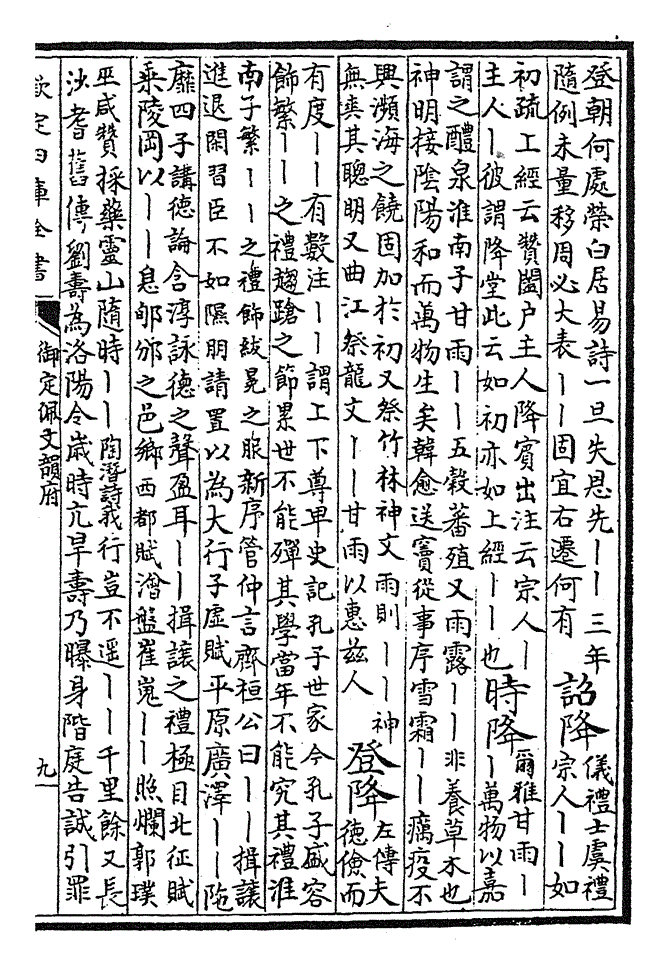 登朝何處榮白居易詩一旦失恩先丨丨三年
隨例未量移周必大表丨丨固宜右遷何有
詔降
儀禮士虞禮
宗人丨丨如
初疏上經云贊闔户主人降賓出注云宗人丨
主人丨彼謂降堂此云如初亦如上經丨丨也
時降
爾雅甘雨丨
丨萬物以嘉
謂之醴泉淮南子甘雨丨丨五穀蕃殖又雨露丨丨非養草木也
神明接陰陽和而萬物生矣韓愈送竇從事序雪霜丨丨癘疫不
興瀕海之饒固加於初又祭竹林神文雨則丨丨神
無爽其聰明又曲江祭龍文丨丨甘雨以惠兹人
登降
左傳夫
德儉而
有度丨丨有數注丨丨謂上下尊卑史記孔子世家今孔子盛容
飾繁丨丨之禮趨蹌之節累世不能殫其學當年不能究其禮淮
南子繁丨丨之禮飾紱冕之服新序管仲言齊桓公曰丨丨揖讓
進退閑習臣不如隰朋請置以為大行子虛賦平原廣澤丨丨陁
靡四子講德論含淳詠德之聲盈耳丨丨揖讓之禮極目北征賦
乘陵岡以丨丨息郇邠之邑鄉西都賦澮盤崔嵬丨丨照爛郭璞
巫咸贊採藥靈山隨時丨丨陶潛詩我行豈不遥丨丨千里餘又長
沙耆舊傳劉壽為洛陽令歲時亢旱壽乃曝身階庭告誠引罪
欽定四庫全書
御定佩文韻府
九